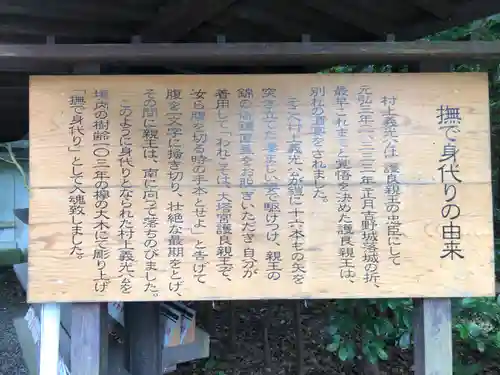 撫で身代りの由来
村上義光公は護良親王の忠臣にして
元弘三年(一三三三年)正月吉野城落城の折、
最早これまでと覚悟を決めた護良親王は、
別れの酒宴をされました。
そこへ村上義光公が鎧に十六本もの矢を
突き立てた凄まじい姿で駆けつけ、親王の
錦の鎧直垂をお脱ぎいただき自分が
着用して「われこそは、大塔宮護良親王ぞ、
汝ら腹を切る時の手本とせよ」と告げて
腹を一文字に掻き切り、壮絶な最期をとげ、
その間に親王は、南に向って落ちのびました。
このように身代りとなられた村上義光公を
境内の樹齢一〇三年の欅の大木にて彫り上げ
「撫で身代り」として入魂致しました。